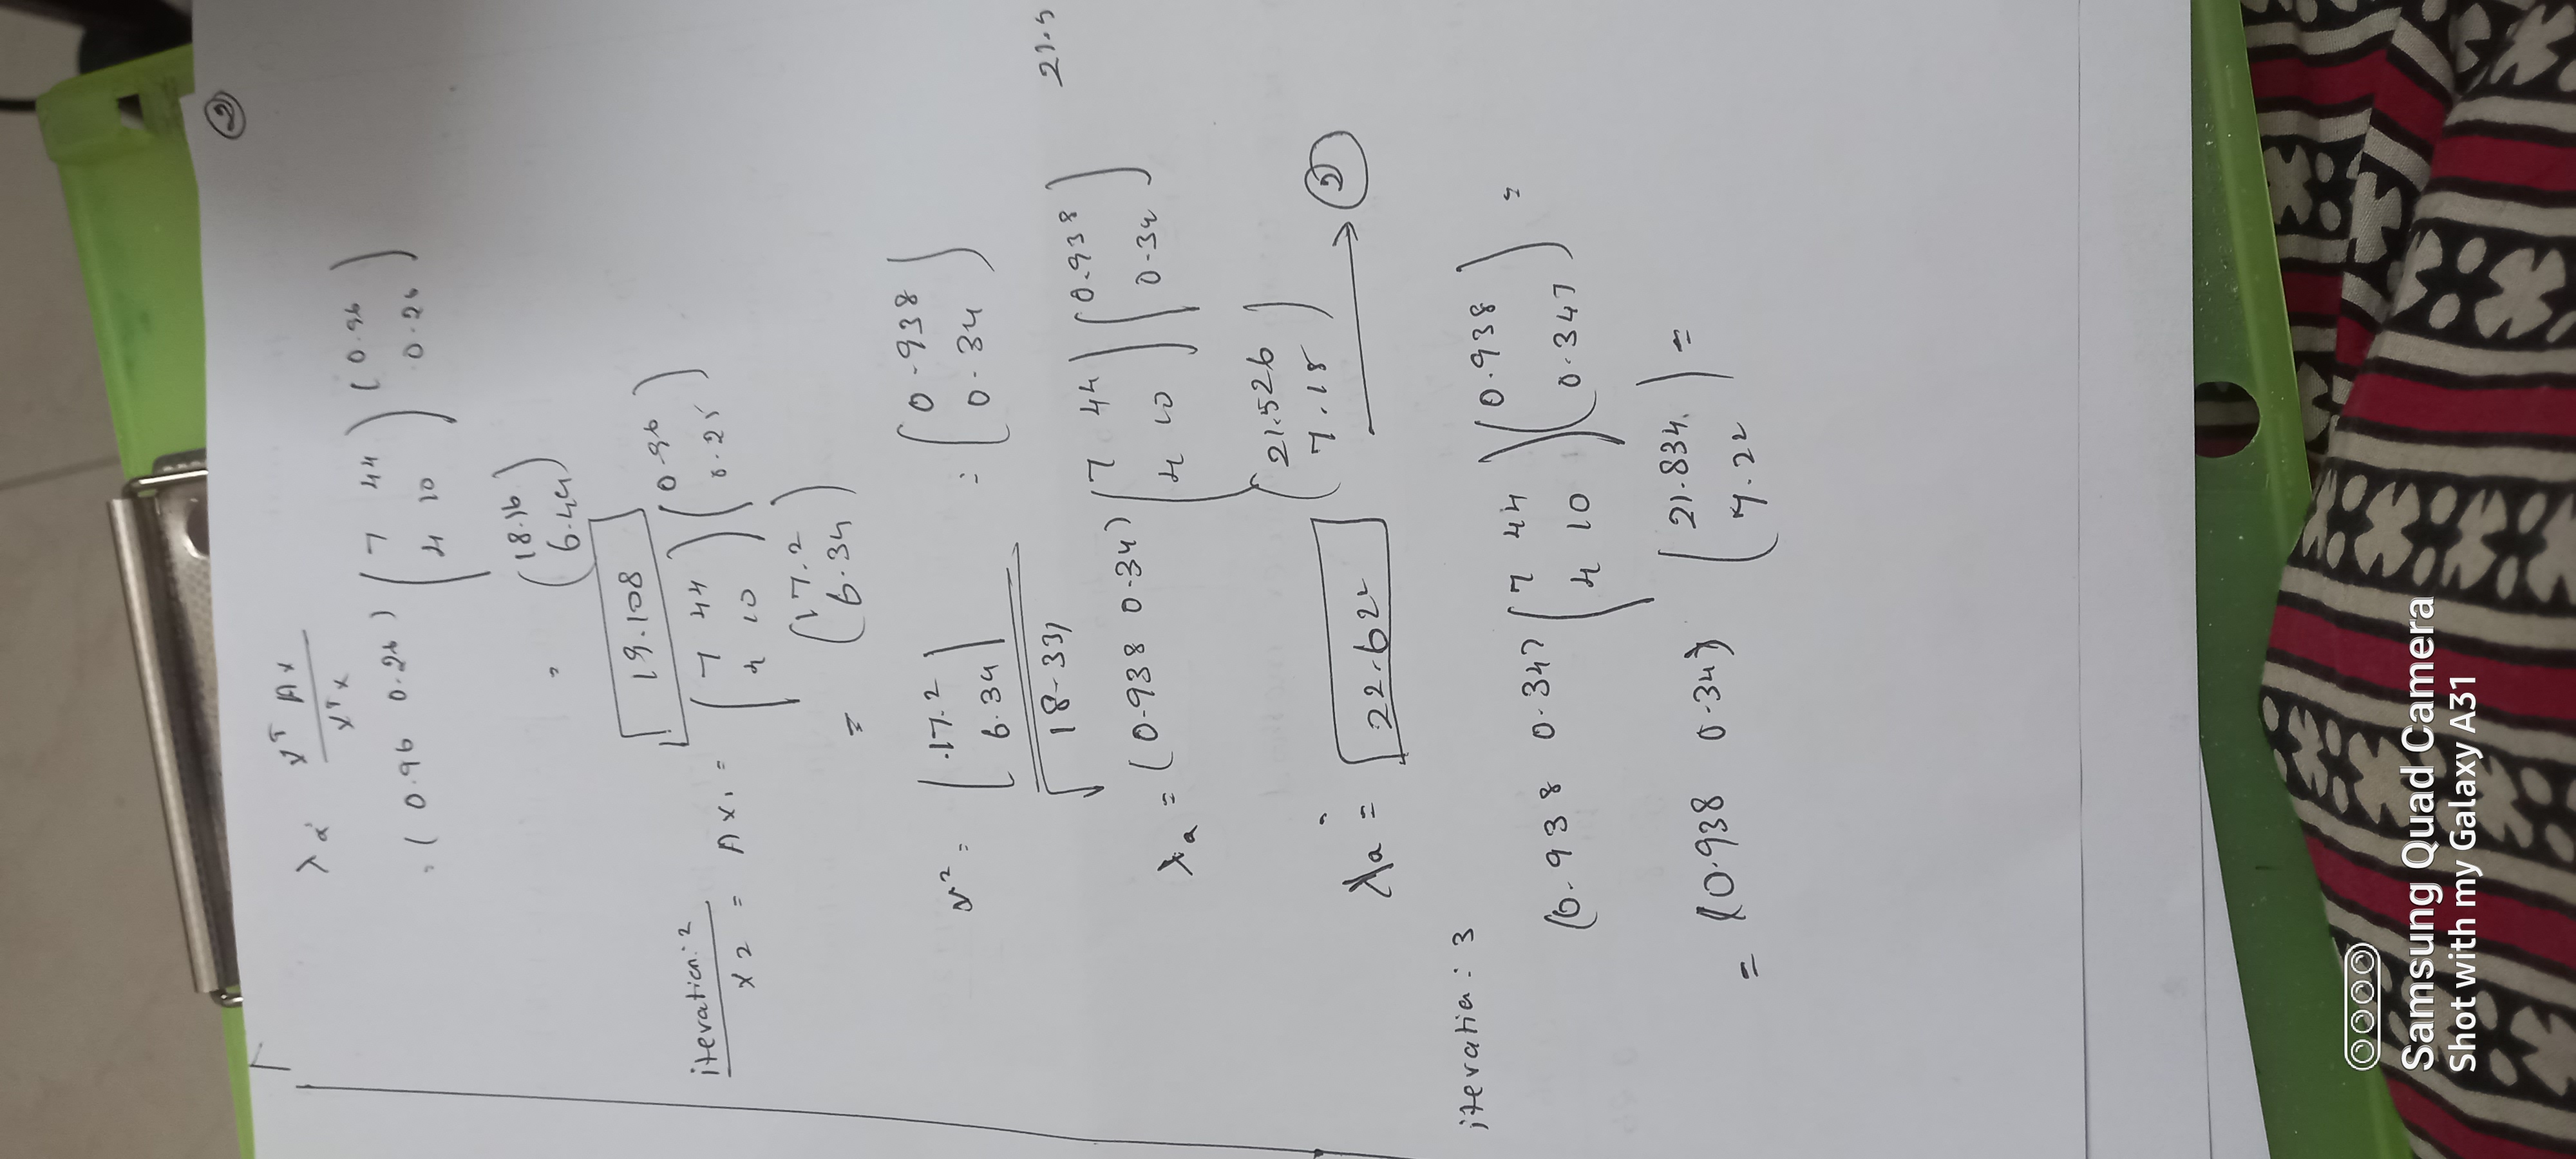 ②
λa = xᵀ Ax / xᵀx
= ( 0.96 0.26 ) ( 7 44
4 10 ) ( 0.96
0.26 )
= ( 18.16
6.44 )
19.108
iteration: 2
x2 = Ax₁ = ( 7 44
4 10 ) ( 0.96
0.25 )
= ( 17.2
6.34 )
x² = [ 17.2
6.34 ] / √18.331 = ( 0.938
0.34 )
21.5
λa = ( 0.938 0.34 ) ( 7 44
4 10 ) ( 0.938
0.34 )
( 21.526
7.15 )
λa = 22.622 → ②
iteratia: 3
(0.938 0.347 ( 7 44
4 10 ) ( 0.938
0.347 ) =
= (0.938 0.347) ( 21.834
7.22 ) =
Samsung Quad Camera
Shot with my Galaxy A31